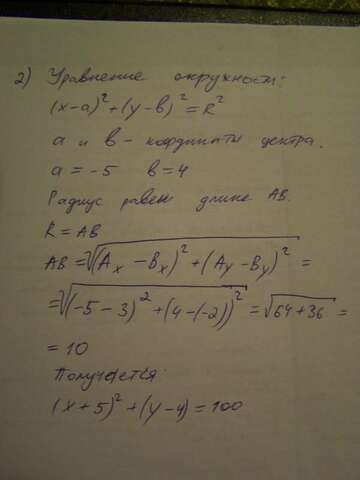 2) Уравнение окружности:
(x-a)²+(y-b)²=R²
a и b - координаты центра.
a = -5 b = 4
Радиус равен длине AB.
R = AB
AB = √(Ax - Bx)² + (Ay - By)² =
= √(-5-3)² + (4-(-2))² = √64+36 =
= 10
Получается:
(x+5)² + (y-4) = 100